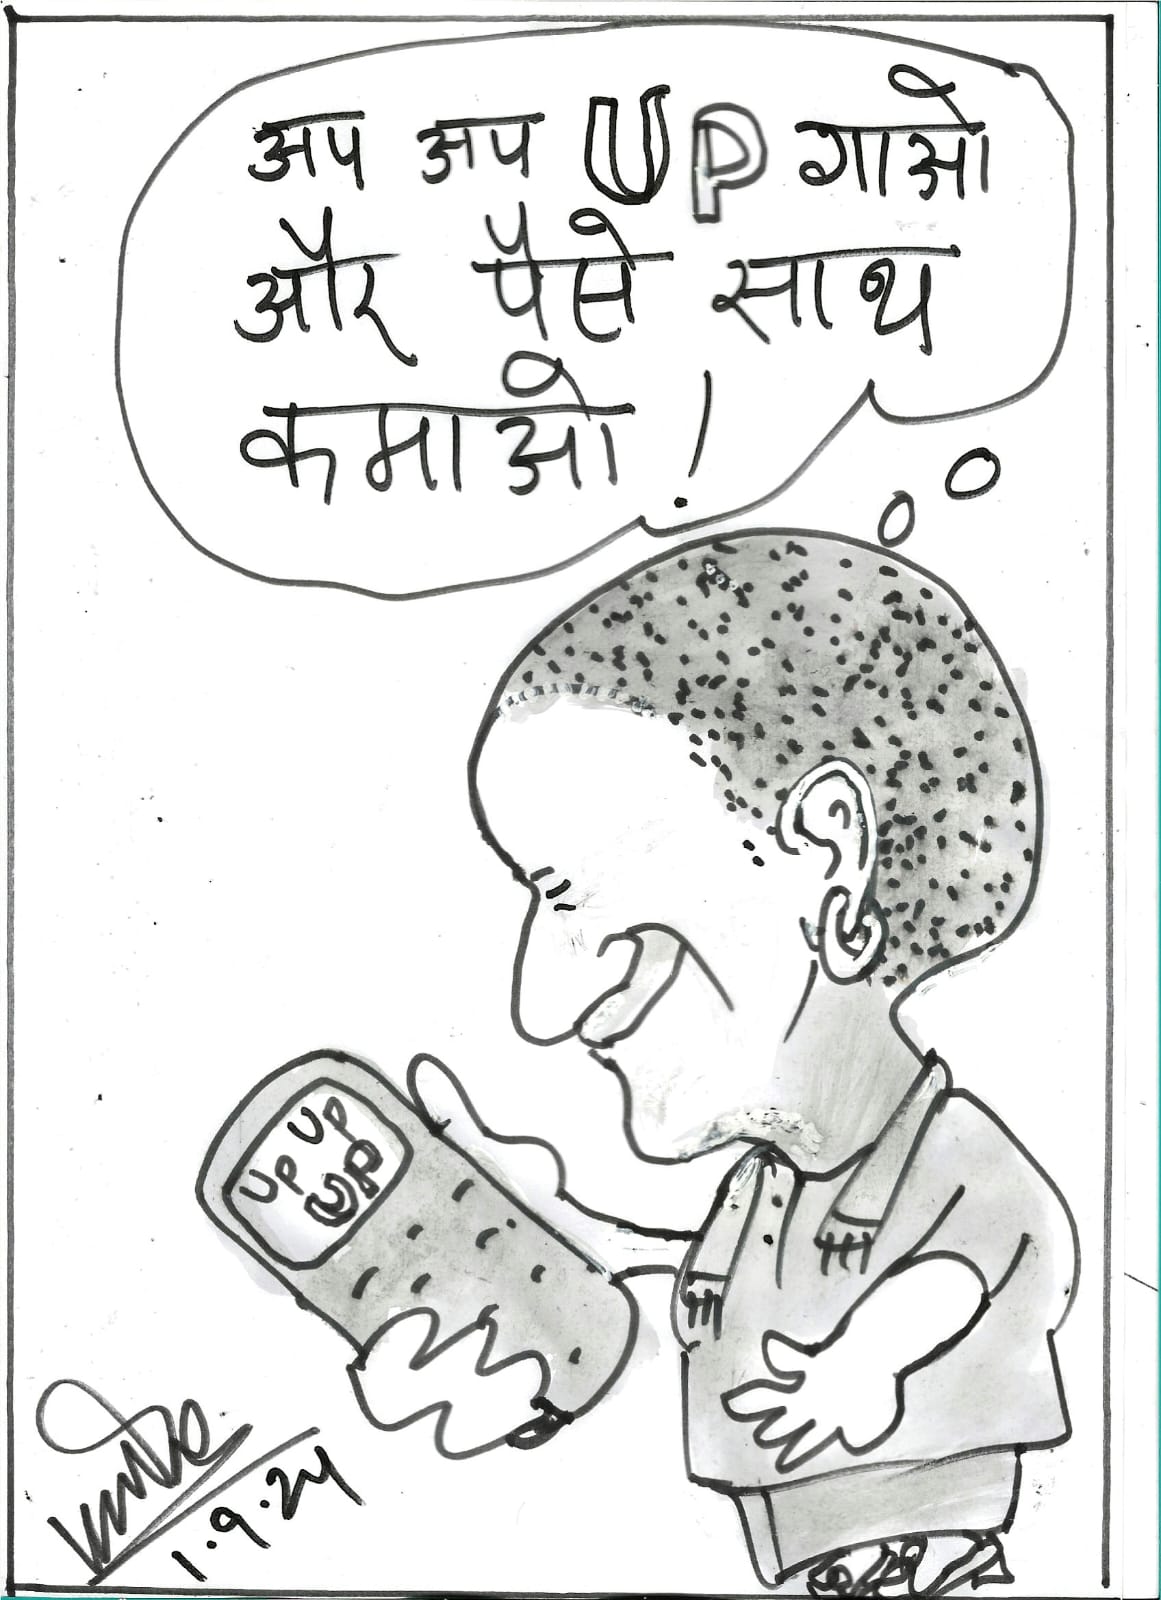 अप अप UP गाओ
और पैसे साथ
कमाओ !
UP UP
UP
1.9.24